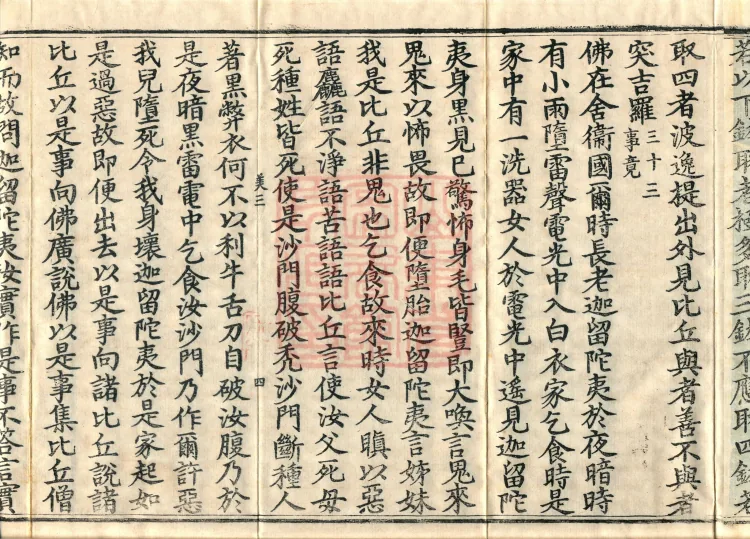 若以下鉢取者極多取二鉢不應取四鉢若
取四者波逸提出外見比丘與者善不與者
突吉羅 三十三事竟
佛在舍衞國爾時長老迦留陀夷於夜暗時
有小雨墮雷聲電光中入白衣家乞食時是
家中有一洗器女人於電光中遙見迦留陀
夷身黑見已驚怖身毛皆豎即大喚言鬼來
鬼來以怖畏故即便墮胎迦留陀夷言姊妹
我是比丘非鬼也乞食故來時女人瞋以惡
語麤語不淨語苦語語比丘言使汝父死母
死種姓皆死使是沙門腹破禿沙門斷種人
美三 四
著黑弊衣何不以利牛舌刀自破汝腹乃於
是夜暗黑雷電中乞食汝沙門乃作爾許惡
我兒墮死令我身壞迦留陀夷於是家起如
是過惡故即便出去以是事向諸比丘說諸
比丘以是事向佛廣說佛以是事集比丘僧
知而故問迦留陀夷汝實作是事不答言實